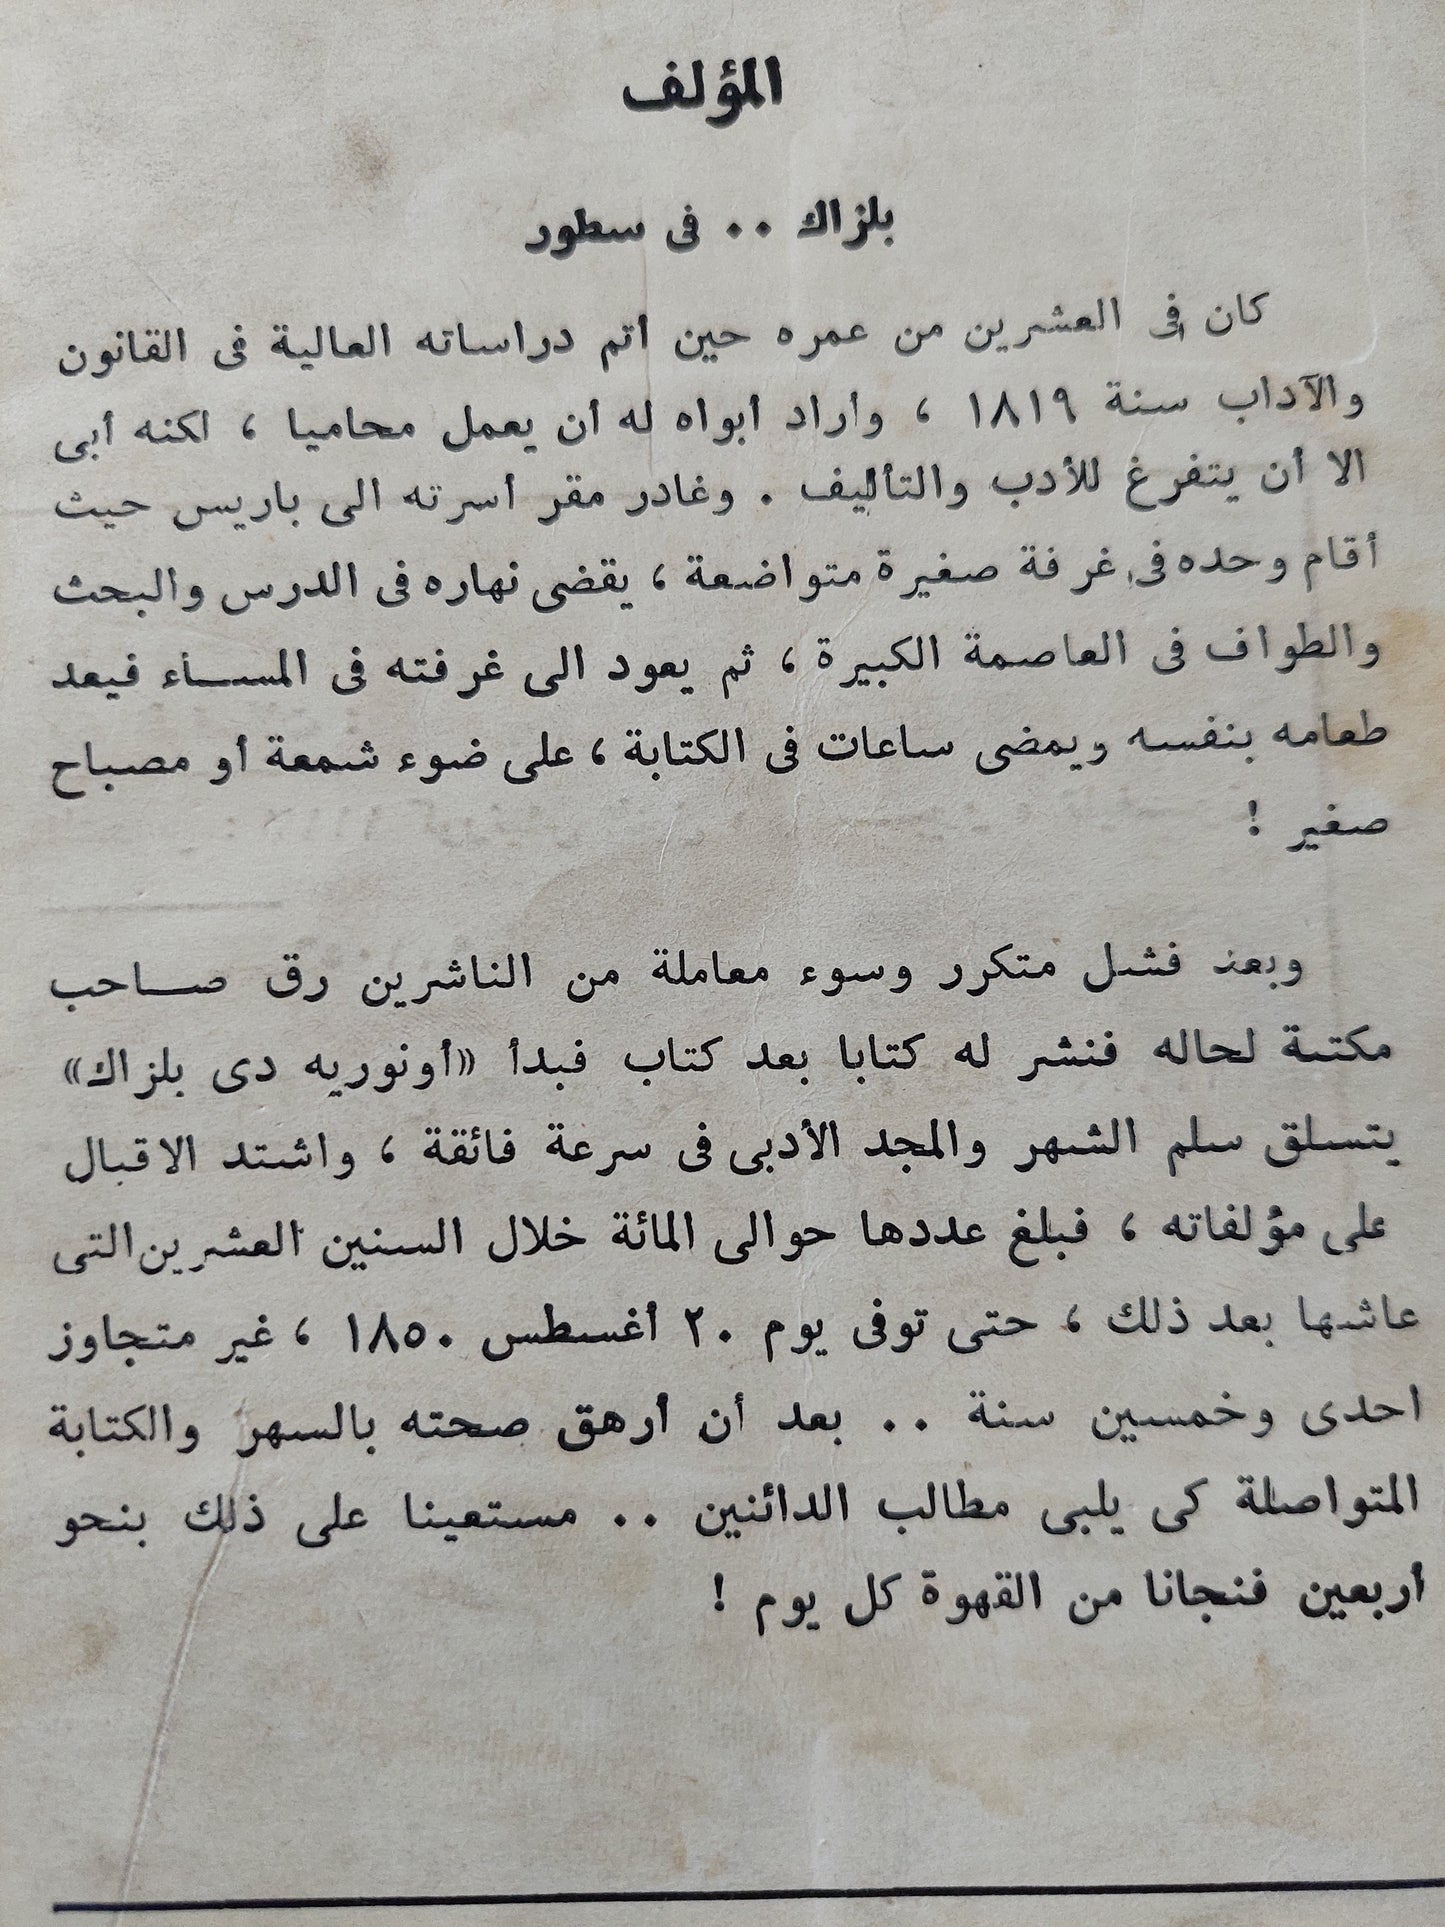 المؤلف
بلزاك .. فى سطور
كان فى العشرين من عمره حين اتم دراساته العالية فى القانون
والآداب سنة ١٨١٩ ، وأراد ابواه له ان يعمل محاميا ، لكنه أبى
الا أن يتفرغ للأدب والتأليف . وغادر مقر أسرته الى باريس حيث
أقام وحده فى غرفة صغيرة متواضعة ، يقضى نهاره فى الدرس والبحث
والطواف فى العاصمة الكبيرة ، ثم يعود الى غرفته فى المساء فيعد
طعامه بنفسه ويمضى ساعات فى الكتابة ، على ضوء شمعة أو مصباح
صغير !
وبعد فشل متكرر وسوء معاملة من الناشرين رق صاحب
مكتبة لحاله فنشر له كتابا بعد كتاب فبدأ «أونوريه دى بلزاك»
يتسلق سلم الشهر والمجد الأدبى فى سرعة فائقة ، واشتد الاقبال
على مؤلفاته ، فبلغ عددها حوالى المائة خلال السنين العشرين التى
عاشها بعد ذلك ، حتى توفى يوم ٢٠ أغسطس ١٨٥٠ ، غير متجاوز
احدى وخمسين سنة .. بعد أن أرهق صحته بالسهر والكتابة
المتواصلة كى يلبى مطالب الدائنين .. مستعينا على ذلك بنحو
أربعين فنجانا من القهوة كل يوم !